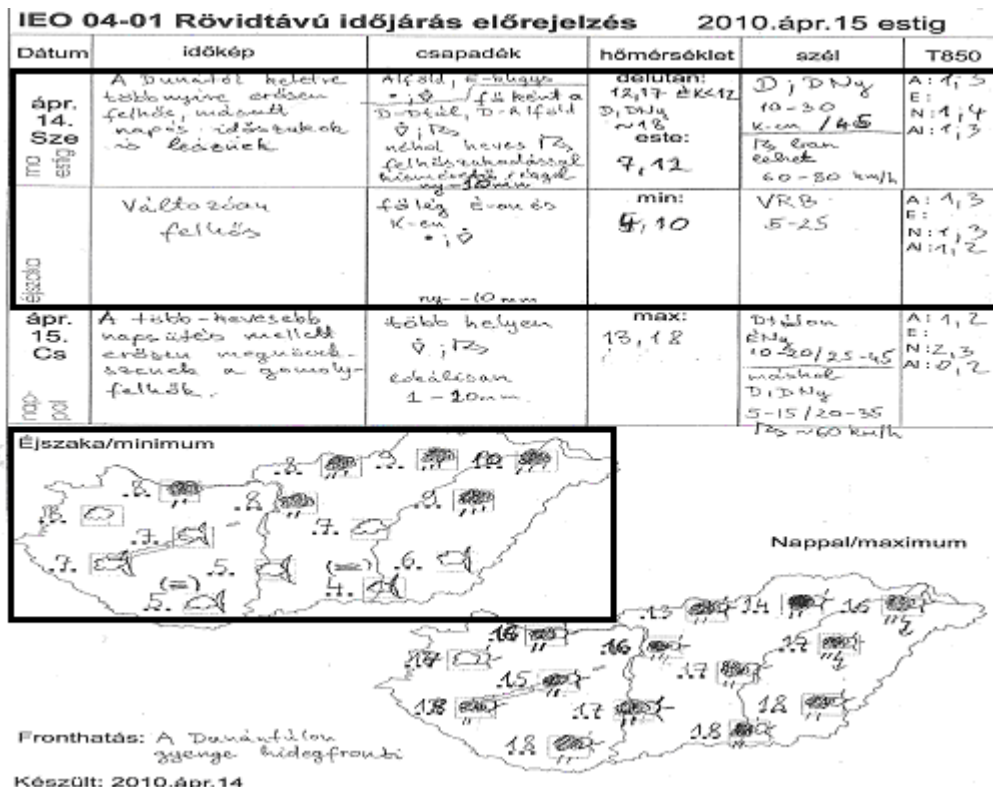 IEO 04-01 Rövidtávú időjárás előrejelzés 2010.ápr.15 estig
Dátum időkép csapadék hőmérséklet szél T850
ápr. 14. Sze
ma estig
A Dunától keletre
többnyire erősen
felhős, másutt
napos időszakok
is lesznek
Alföld,
főként a
D-Dtúl, D-Alföld
néhol heves
felhőszakadással
ny-10mm
délután:
12,17 ÉK<12
D, DNy
~18
este:
7,12
D; DNy
10-30
K-en /45
ban
lehet
60-80 km/h
A: 1,3
E:
N: 1,4
Al: 1,3
éjszaka
Változóan
felhős
főleg É-on és
K-en
ny-10mm
min:
4,10
VRB
5-25
A: 1,3
E:
N: 1,3
Al: 1,2
ápr. 15. Cs
nap-pol
A több-kevesebb
napsütés mellett
erősen megnövek-
szenek a gomoly-
felhők.
több helyen
lokálisan
1-20mm
max:
13,18
Dtúlon
ÉNy
10-20/25-45
máshol
D, DNy
5-15/20-35
~60 km/h
A: 1,2
E:
N: 2,3
Al: 0,2
Éjszaka/minimum
8 9 10
8 8 9
8 7 7
7 5 6
(=) (=)
5 4
Nappal/maximum
13 14 16
16 16 17
17 15 17
18 17 18
18 18
Fronthatás: A Dunántúlon
gyenge hidegfronti
Készült: 2010.ápr.14